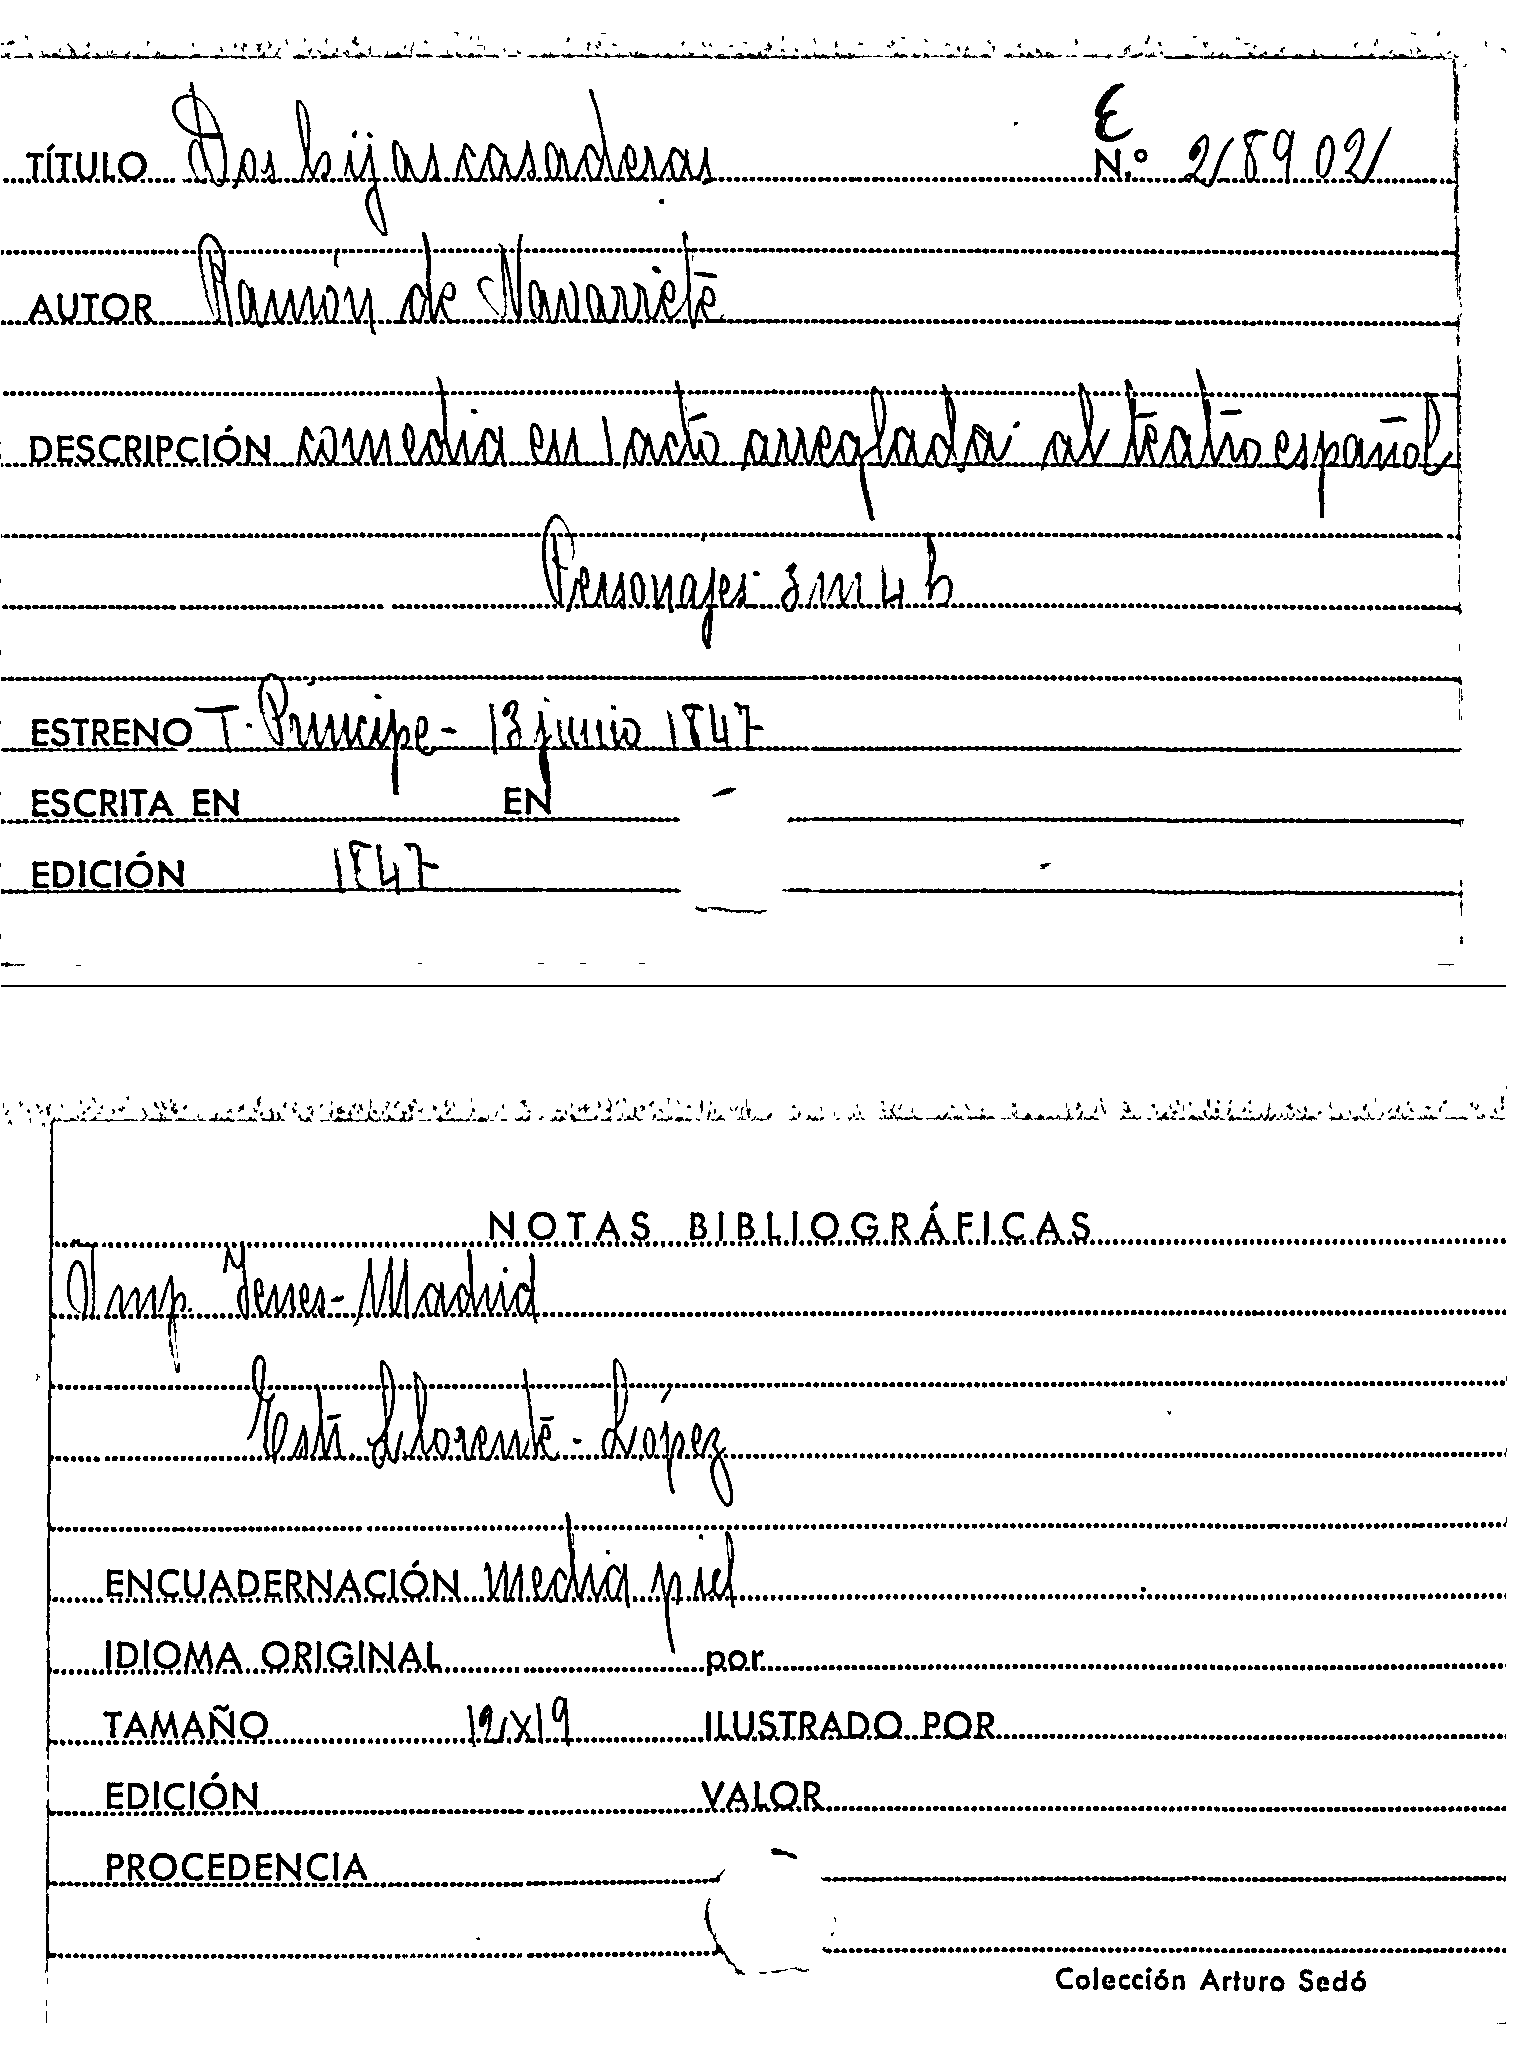 E
TÍTULO Dos hijas casaderas N.º 28902
AUTOR Ramón de Navarrete
DESCRIPCIÓN comedia en 1 acto arreglada al teatro español
Personajes 3 m 4 h
ESTRENO T. Príncipe - 13 junio 1847
ESCRITA EN EN
EDICIÓN 1847
NOTAS BIBLIOGRÁFICAS
Imp. Yenes - Madrid
Llorente - López
ENCUADERNACIÓN media piel
IDIOMA ORIGINAL por
TAMAÑO 12x19 ILUSTRADO POR
EDICIÓN VALOR
PROCEDENCIA
Colección Arturo Sedó